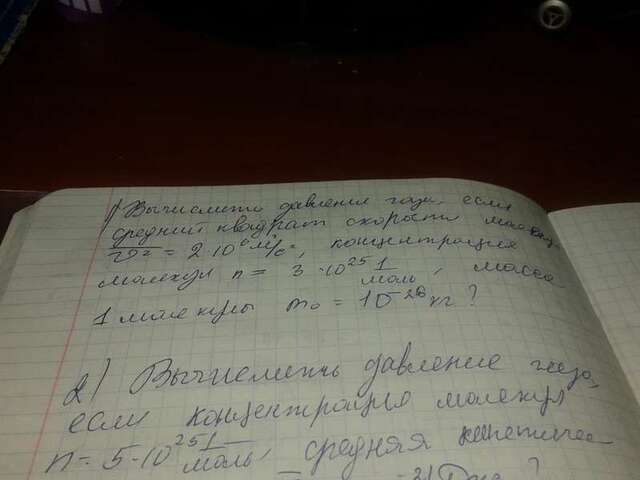 1) Вычислить давление газа, если
средний квадрат скорости молекул
v² = 2·10⁶ м/с, концентрация
молекул n = 3·10²⁵ 1/моль, масса
1 молекулы m₀ = 10⁻²⁶ кг?
2) Вычислить давление газа,
если концентрация молекул
n = 5·10²⁵ 1/моль, средняя кинетичес
Дж?